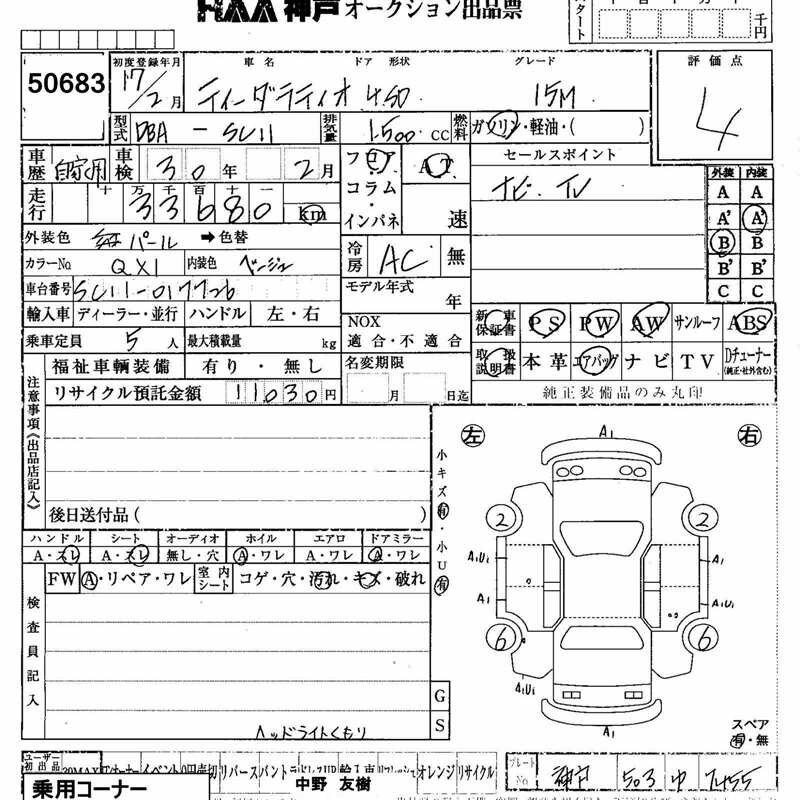 HAA 神戸 オークション出品票
スタート 千円
50683
初度登録年月 車名 ドア 形状 グレード 評価点
17/2月 ティーダラティオ 4SD 15M 4
型式 DBA - SC11 排気量 1500 cc 燃料 ガソリン・軽油・( )
車歴 自家用 車検 30年 2月 フロア AT セールスポイント
コラム・インパネ 速 ナビ. TV
走行 十万千百十一 33680 km
外装 内装
A A
A' A'
B B
B' B'
C C
外装色 パール ➡色替 冷房 AC 無
カラーNo QX1 内装色 ベージュ
車台番号 SC11-017726 モデル年式 年
輸入車 ディーラー・並行 ハンドル 左・右 NOX 適合・不適合
新車保証書 PS PW AW サンルーフ ABS
乗車定員 5人 最大積載量 kg
取扱説明書 本革 エアバッグ ナビ TV Dチューナー(純正・社外含む)
福祉車輌装備 有り・無し 名変期限 月 日迄
純正装備品のみ丸印
リサイクル預託金額 11030円
注意事項《出品店記入》
後日送付品( )
小キズ有・小U有
左 右
A1
2 2
A1U1 A1
A1 A1U1
6 6
A1U1
A1
ハンドル シート オーディオ ホイール エアロ ドアミラー
A・スレ A・スレ 無し・穴 A・ワレ A・ワレ A・ワレ
FW A・リペア・ワレ 室内シート コゲ・穴・汚れ・キズ・破れ
検査員記入
ヘッドライトくもり
G
S
スペア 有・無
ユーザー初出品 オレンジ リサイクル
プレートNo 神戸 503 ゆ 7455
乗用コーナー 中野 友樹